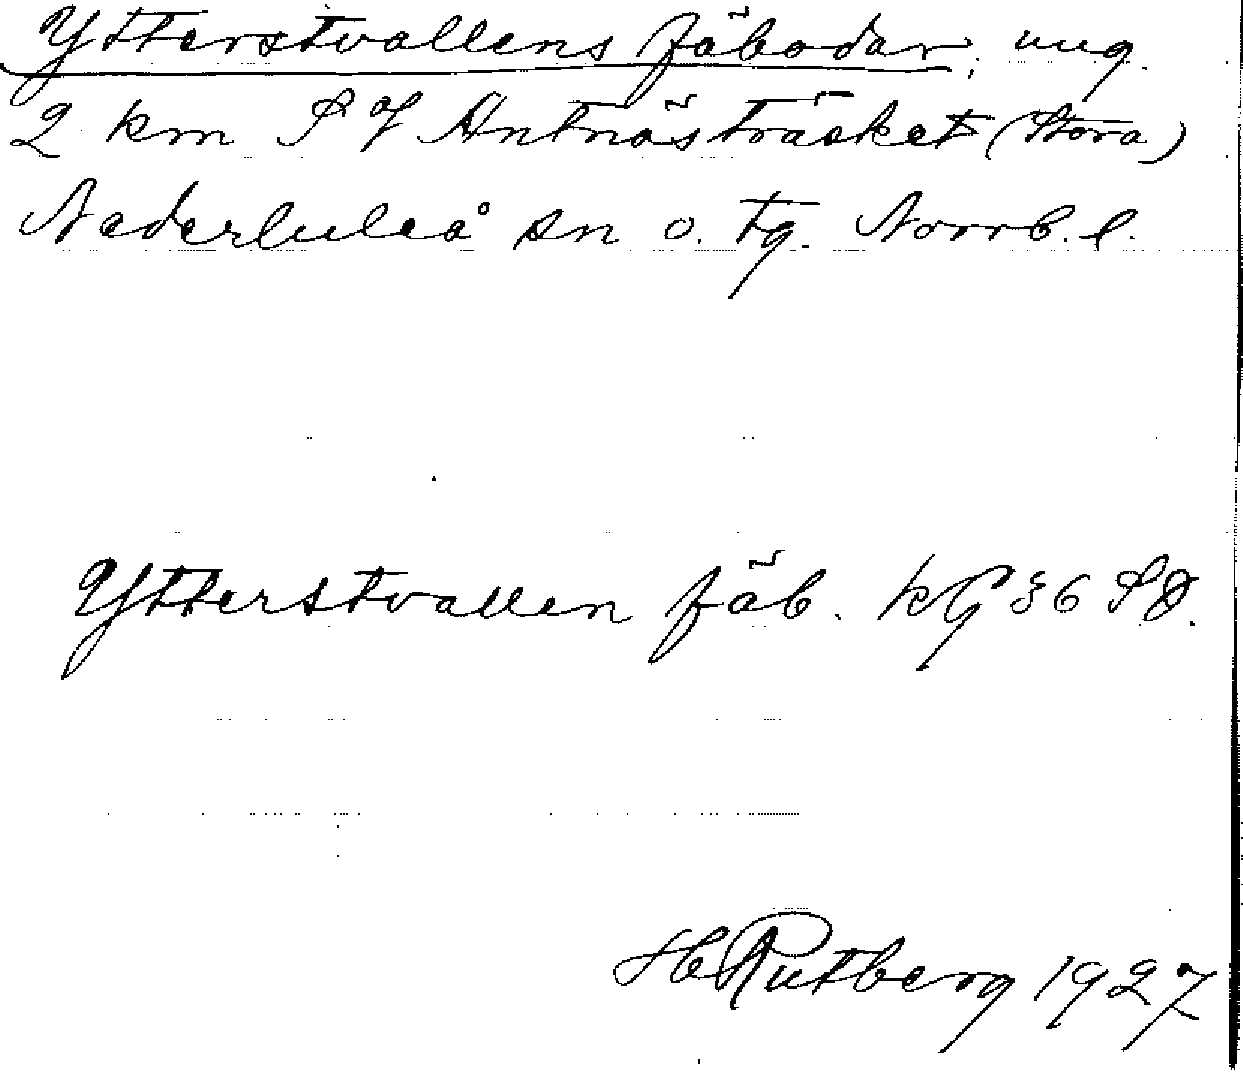 Ytterstvallens fäbodar, ung.
2 km SV Antnästräsket (Stora)
Nederluleå sn o. tg. Norrb. l.
Ytterstvallen fäb. kG 36 SO.
H Rutberg 1927